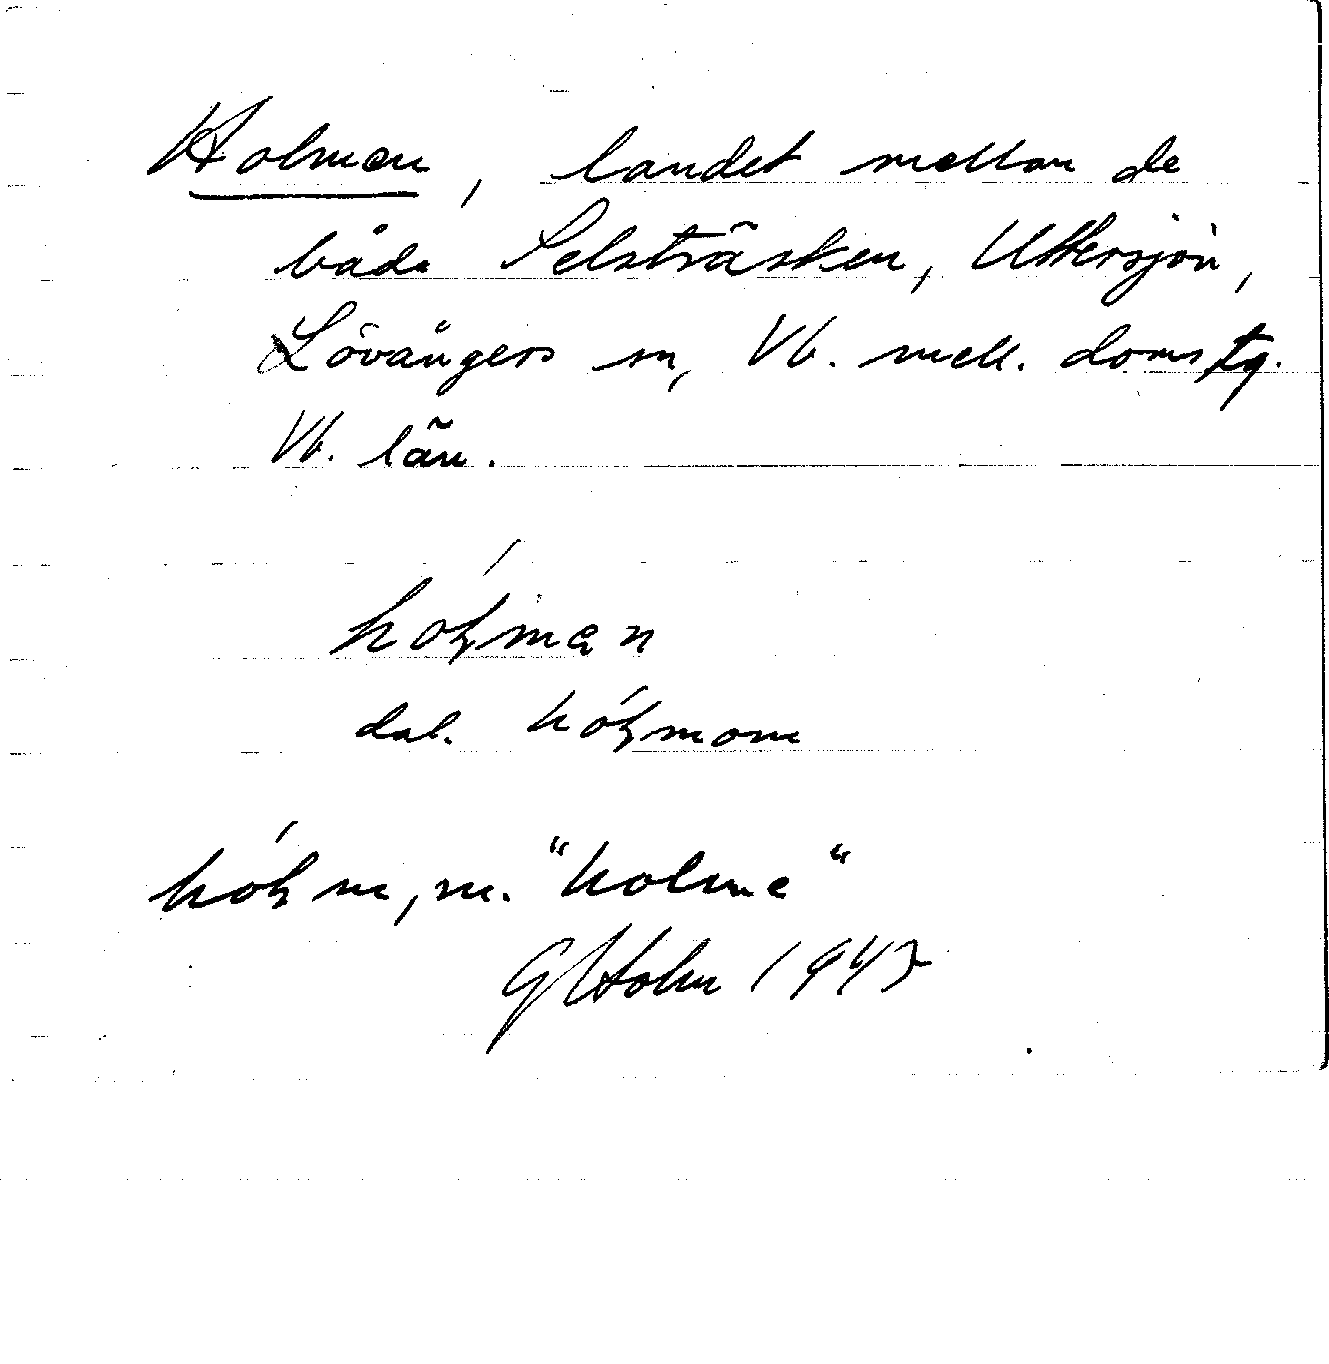 Holmen, landet mellan de
båda Selsträsken, Uttersjön,
Lövångers sn, Vb. mell. doms tg.
Vb. län.
hóɫmen
dat. hóɫmom
hóɫm, m. "holme"
G Holm 1947